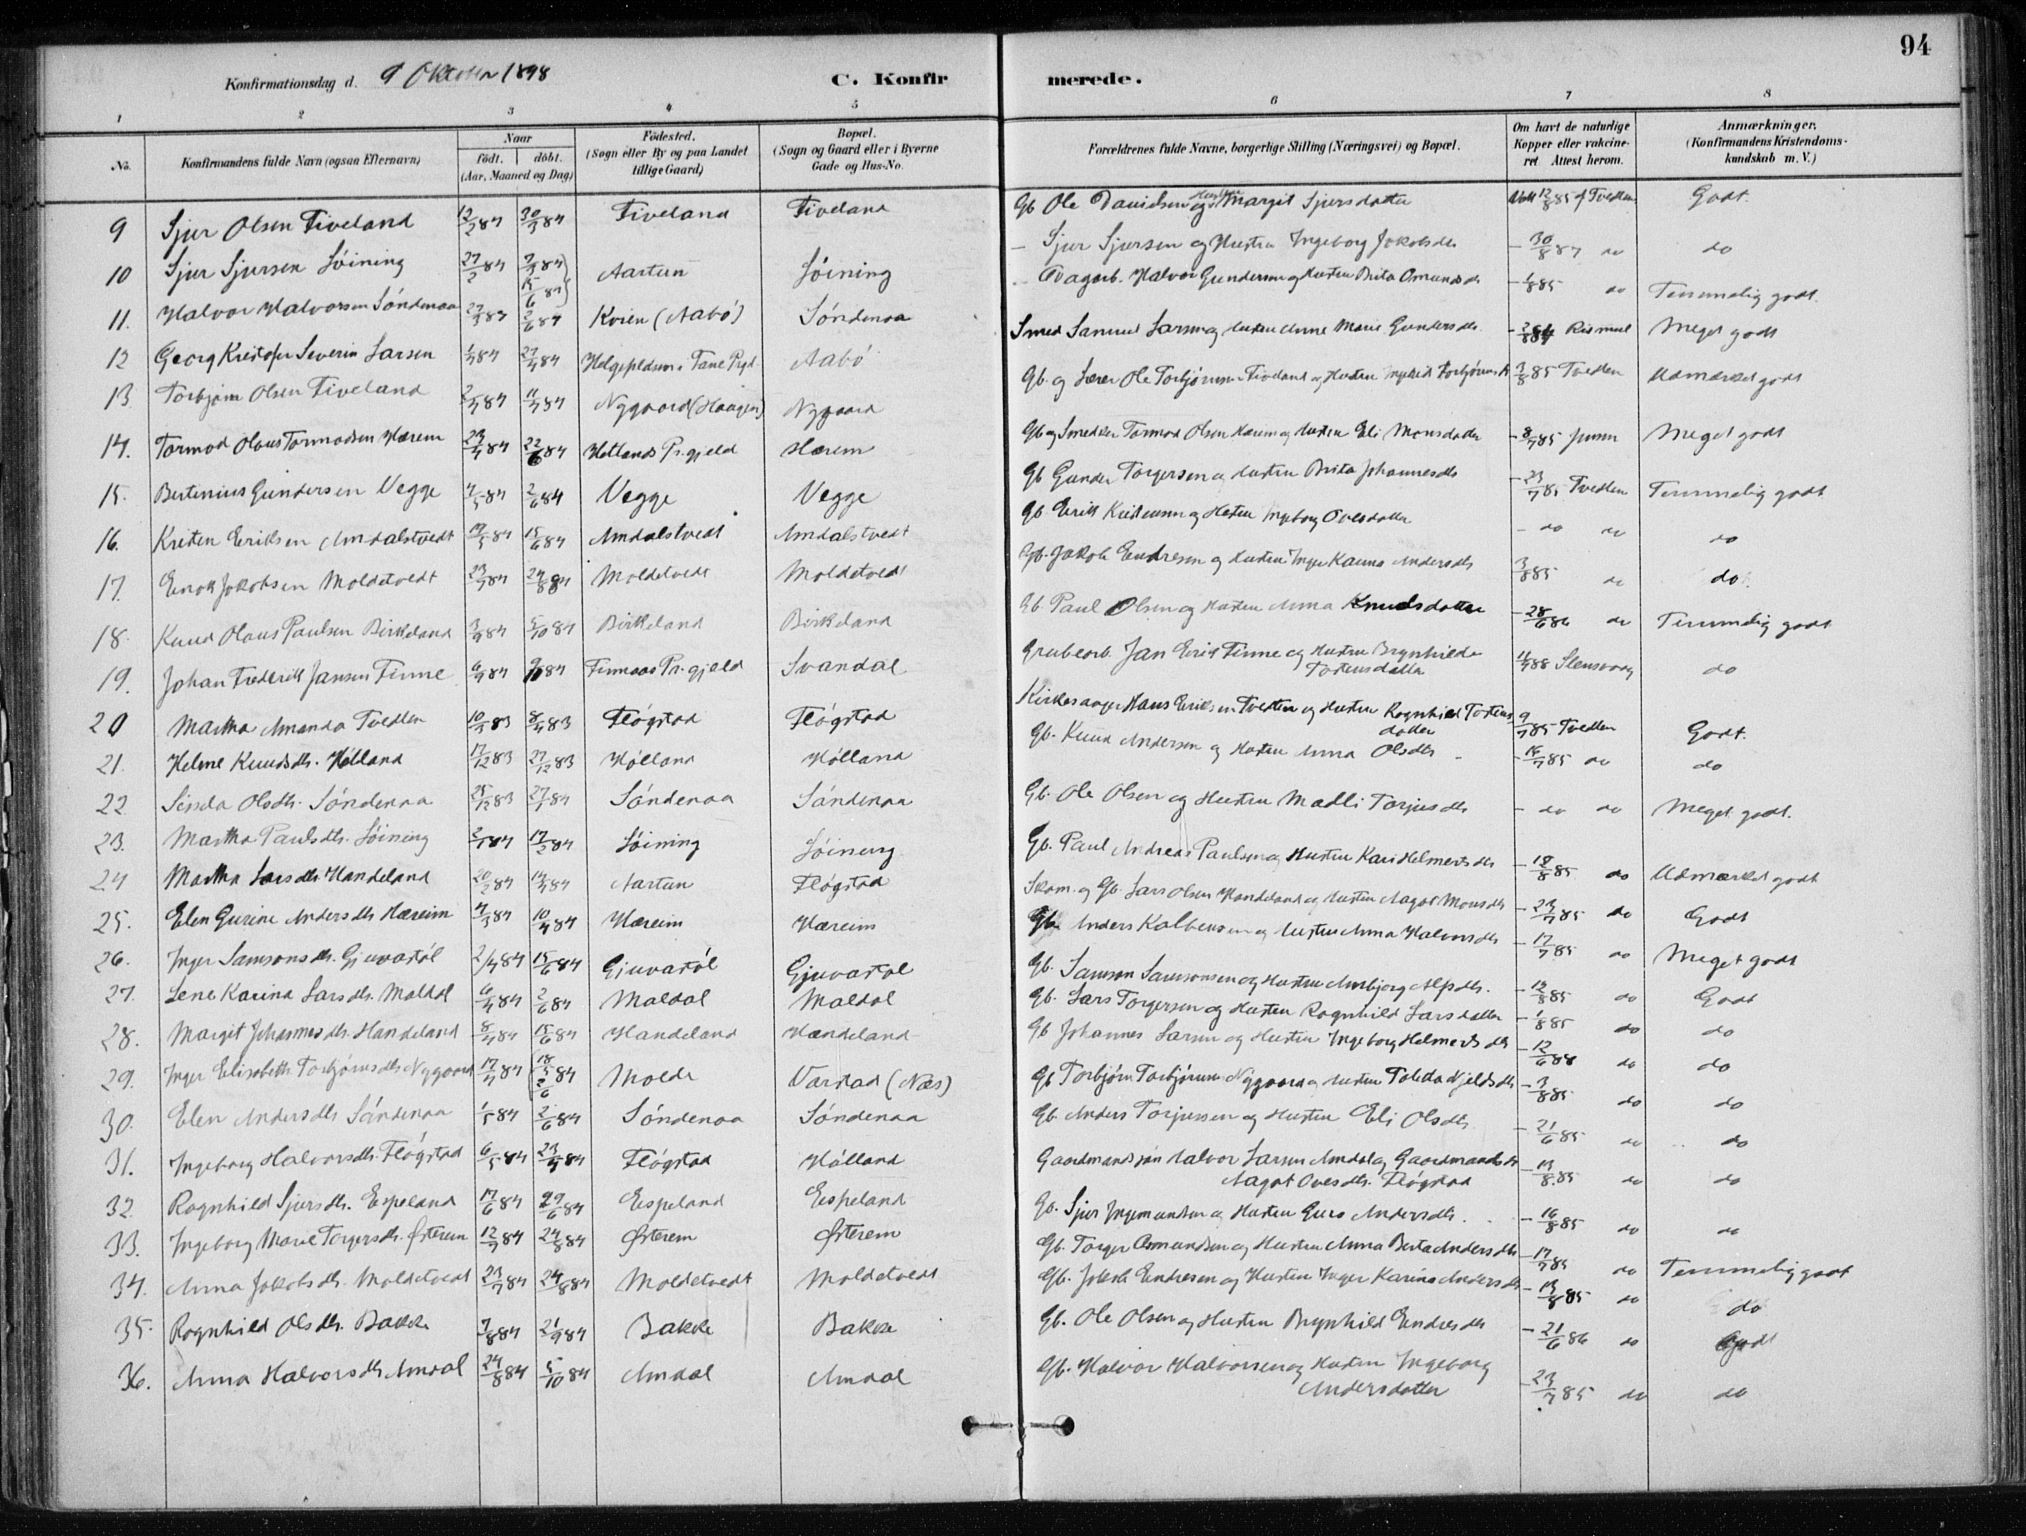 94
Konfirmationsdag d. 9 Oktober 1898
C. Konfirmerede.
1 2 3 4 5 6 7 8
No. Konfirmandens fulde Navn (ogsaa Efternavn) Naar født. døbt. (Aar, Maaned og Dag) Fødested. (Sogn eller By og paa Landet tillige Gaard) Bopæl. (Sogn og Gaard eller i Byerne Gade og Hus-No. Forældrenes fulde Navne, borgerlige Stilling (Næringsvei) og Bopæl. Om havt de naturlige Kopper eller vakcineret Attest herom. Anmærkninger. (Konfirmandens Kristendomskundskab m. V.)
9 Sjur Olsen Fiveland 12/2 84 30/3 84 Fiveland Fiveland Gb Ole Davidsen og Hustru Margit Sjursdatter 12/8 85 af Tvedten Godt.
10 Sjur Sjursen Løining 27/2 84 Aartun Løining - Sjur Sjursen og Hustru Ingeborg Jakobsdtr - 30/8 87 do do
11. Halvor Halvorsen Søndenaa 2/6 84 Kvien (Aabø) Søndenaa Dagarb. Halvor Gundersen og Hustru Brita Omundsdtr - 1/8 85 do Temmelig godt.
12 Georg Kristofer Severin Larsen 27/4 84 Aabø Smed Samuel Larsen og Hustru Anne Marie Gundersdtr. Meget godt
13. Torbjørn Olsen Fiveland 2/4 84 11/4 84 Nygaard (Haagen) Nygaard Gb. og Lærer Ole Torbjørnsen Fiveland og Hustru Torbjørnsdtr 3/8 85 Tvedten Udmærket godt
14. Tormod Olaus Tormodsen Hærem 23/4 84 22/6 84 Hetlands Pr.gjeld Hærem Gb og Smed Tormod Olsen Hærem og Hustru Eli Monsdatter - 8/7 85 Jensen Meget godt
15. Bertinius Gundersen Vegge 4/5 84 2/6 84 Vegge Vegge Gb Gunder Torgersen og Hustru Brita Johannesdtr - 23/7 85 Tvedten Temmelig godt
16. Kristen Eriksen Amdalstvedt 19/5 84 15/6 84 Amdalstvedt Amdalstvedt Gb. Erik Kristensen og Hustru Ingeborg Ovesdatter - do do do
17. Enok Jakobsen Moldetvedt 23/7 84 24/8 84 Moldetvedt Moldetvedt Gb. Jakob Endresen og Hustru Inger Karina Andersdtr 3/8 85 do do.
18. Knud Olaus Paulsen Birkeland 3/9 84 5/10 84 Birkeland Birkeland Gb. Paul Olsen og Hustru Anna Knudsdatter - 28/6 86 do Temmelig godt
19. Johan Frederik Jansen Finne 6/9 84 9/10 84 Finnaas Pr.gjeld Svandal Grubearb. Jan Erik Finne og Hustru Brynhilde
Torstensdatter 11/7 88 Stensvaag do
20 Martha Amanda Tvedten 10/3 83 8/4 83 Fløgstad Fløgstad Kirkesanger Hans Eriksen Tvedten og Hustru Ragnhild Torstens
datter 9/7 85 Tvedten Godt.
21. Helene Knudsdtr. Hølland 17/12 83 27/12 83 Hølland Hølland Gb. Knud Andersen og Hustru Anna Olsdtr - 16/7 85 do do
22. Olsdtr. Søndenaa 25/12 83 27/1 84 Søndenaa Søndenaa Gb. Ole Olsen og Hustru Madli Torjusdtr - do do Meget godt.
23. Martha Paulsdtr. Løining 2/1 84 17/2 84 Løining Løining Gb. Paul Andreas Paulsen og Hustru Kari Helmersdtr - 18/8 85 do Udmærket godt
24 Martha Larsdtr. Handeland 20/2 84 14/4 84 Aartun Fløgstad Skom. og Gb. Lars Olsen Handeland og Hustru Aagot Monsdtr - 23/7 85 do Godt
25. Elen Gurine Andersdtr Hæreim 4/3 84 10/4 84 Hæreim Hæreim Gb. Anders Kolbensen og Hustru Anna Halvorsdtr - 17/7 85 do Meget godt
26. Inger Samsonsdtr. Gjuvastøl 2/4 84 15/6 84 Gjuvastøl Gjuvastøl Gb. Samson Samsonsen og Hustru Anbjørg Alfsdtr. - 12/8 85 do Godt
27. Lene Karina Larsdtr. Maldal 6/4 84 2/6 84 Maldal Maldal Gb. Lars Torgersen og Hustru Ragnhild Larsdatter - 1/8 85 do do
28. Margit Johannesdtr. Handeland 8/4 84 15/6 84 Handeland Handeland Gb Johannes Larsen og Hustru Ingeborg Helmersdtr - 12/6 88 do do
29. Inger Elisabeth Torbjørnsdtr Nygaard 17/4 84 Molde Varstad (Næs) Gb Torbjørn Torbjørnsen Nygaard og Hustru Toleda Kjeldsdtr - 3/8 85 do do
30. Elen Andersdtr Søndenaa 1/5 84 2/6 84 Søndenaa Søndenaa Gb. Anders Torjussen og Hustru Eli Olsdtr. - 21/6 85 do do
31. Ingeborg Halvorsdtr. Fløgstad 6/5 84 Fløgstad Hølland Gaardmandssøn Halvor Larsen Amdal og Gaardmandsdtr
Aagot Ovesdtr. Fløgstad - 13/8 85 do do
32. Ragnhild Sjursdtr. Espeland 17/6 84 29/6 84 Espeland Espeland Gb. Sjur Ingemundsen og Hustru Guro Andersdtr. - 16/8 85 do do
33. Ingeborg Marie Torgersdtr. Østerem 12/7 84 24/8 84 Østerem Østerem Gb. Torger Osmundsen og Hustru Anna Berta Andersdtr - 17/7 85 do Temmelig godt
34. Anna Jakobsdtr. Moldetvedt 23/7 84 24/8 84 Moldetvedt Moldetvedt Gb. Jakob Endresen og Hustru Inger Karina Andersdtr - 13/8 85 do do
35. Ragnhild Olsdtr. Bakke 7/8 84 21/9 84 Bakke Bakke Gb. Ole Olsen og Hustru Brynhild Endresdtr - 21/6 86 do Godt
36. Anna Halvorsdtr Amdal 24/8 84 5/10 84 Amdal Amdal Gb. Halvor Halvorsen og Hustru Ingeborg
Andersdatter - 23/7 85 do do